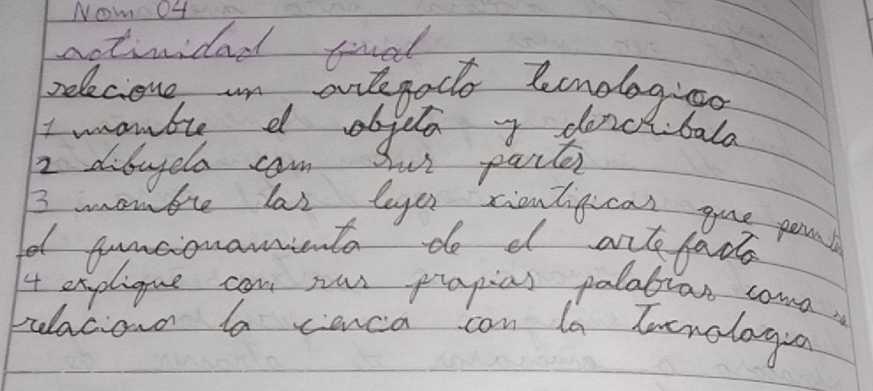 Nom 04
actinidad final
selecione un artefacto tecnologico
1 nombre el objeto y describala
2 dibujelo com sus partes
3 nombre las leyes cientificas que permite
el funcionamiento de el artefacto
4 explique con sus propias palabras como se
relaciona la ciencia con la Tecnologia